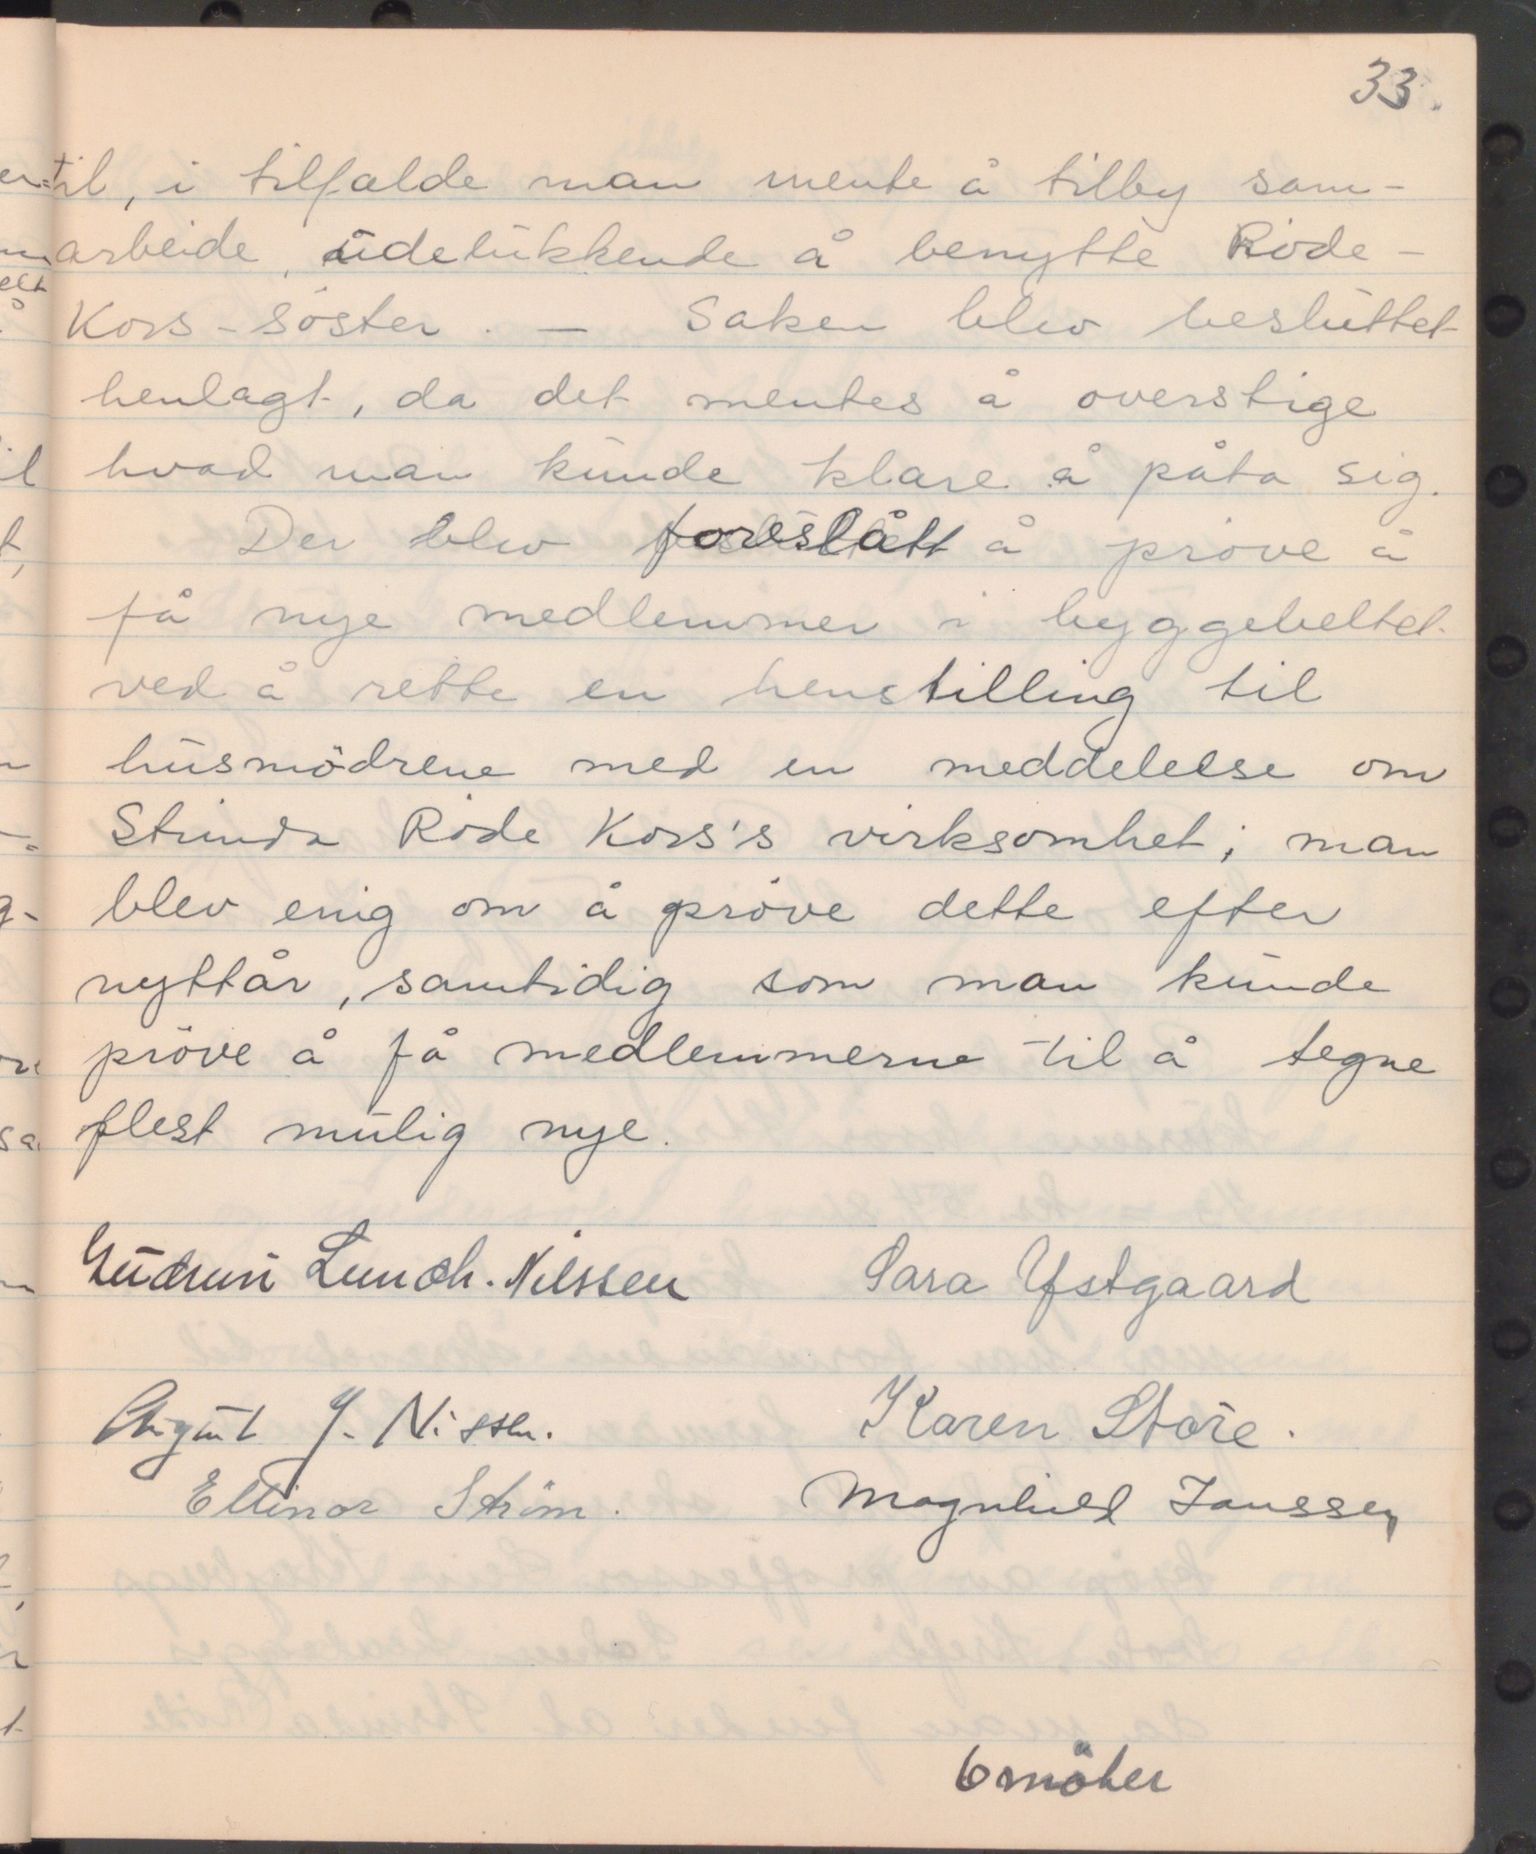 33.
til, i tilfælde man mente å tilby sam-
arbeide, udelukkende å benytte Röde-
Kors-söster. — Saken blev besluttet
henlagt, da det mentes å overstige
hvad man kunde klare å påta sig.
Der blev foreslått å pröve å
få nye medlemmer i byggebeltet
ved å rette en henstilling til
husmödrene med en meddelelse om
Strinda Röde Kors's virksomhet; man
blev enig om å pröve dette efter
nyttår, samtidig som man kunde
pröve å få medlemmerne til å tegne
flest mulig nye.
Gudrun Lunch-Nilssen Sara Ystgaard
August J. Nissen. Karen Störe.
Ellinor Ström. Magnhild Janssen
6 möter